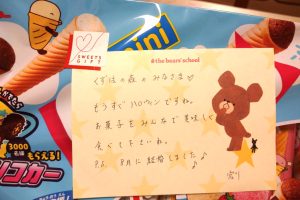 SWEETS
GIFT
mini
the bears' school
くずはの森のみなさま♡
もうすぐハロウィンですね。
お菓子をみんなで美味しく
食べて下さいね。
P.S. 8月に結婚しました♪
3000
名様
もらえる!
コカー